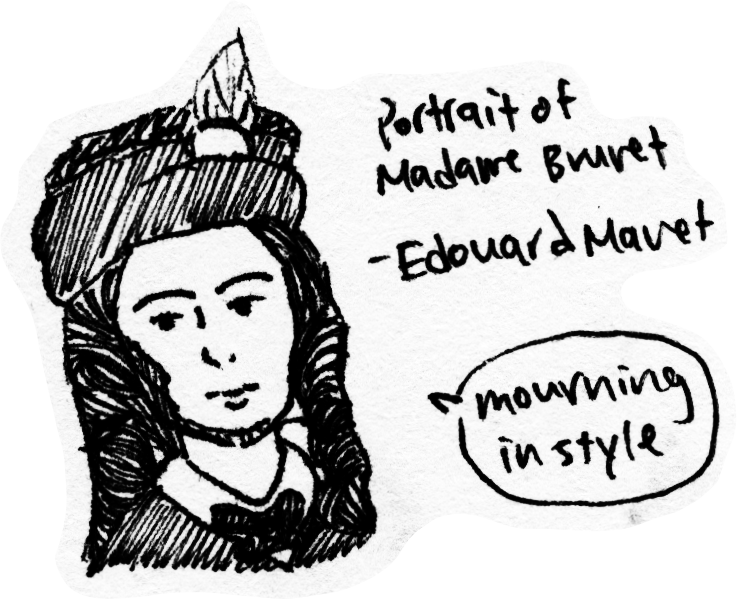 Portrait of
Madame Brunet
-Edouard Manet
mourning
in style